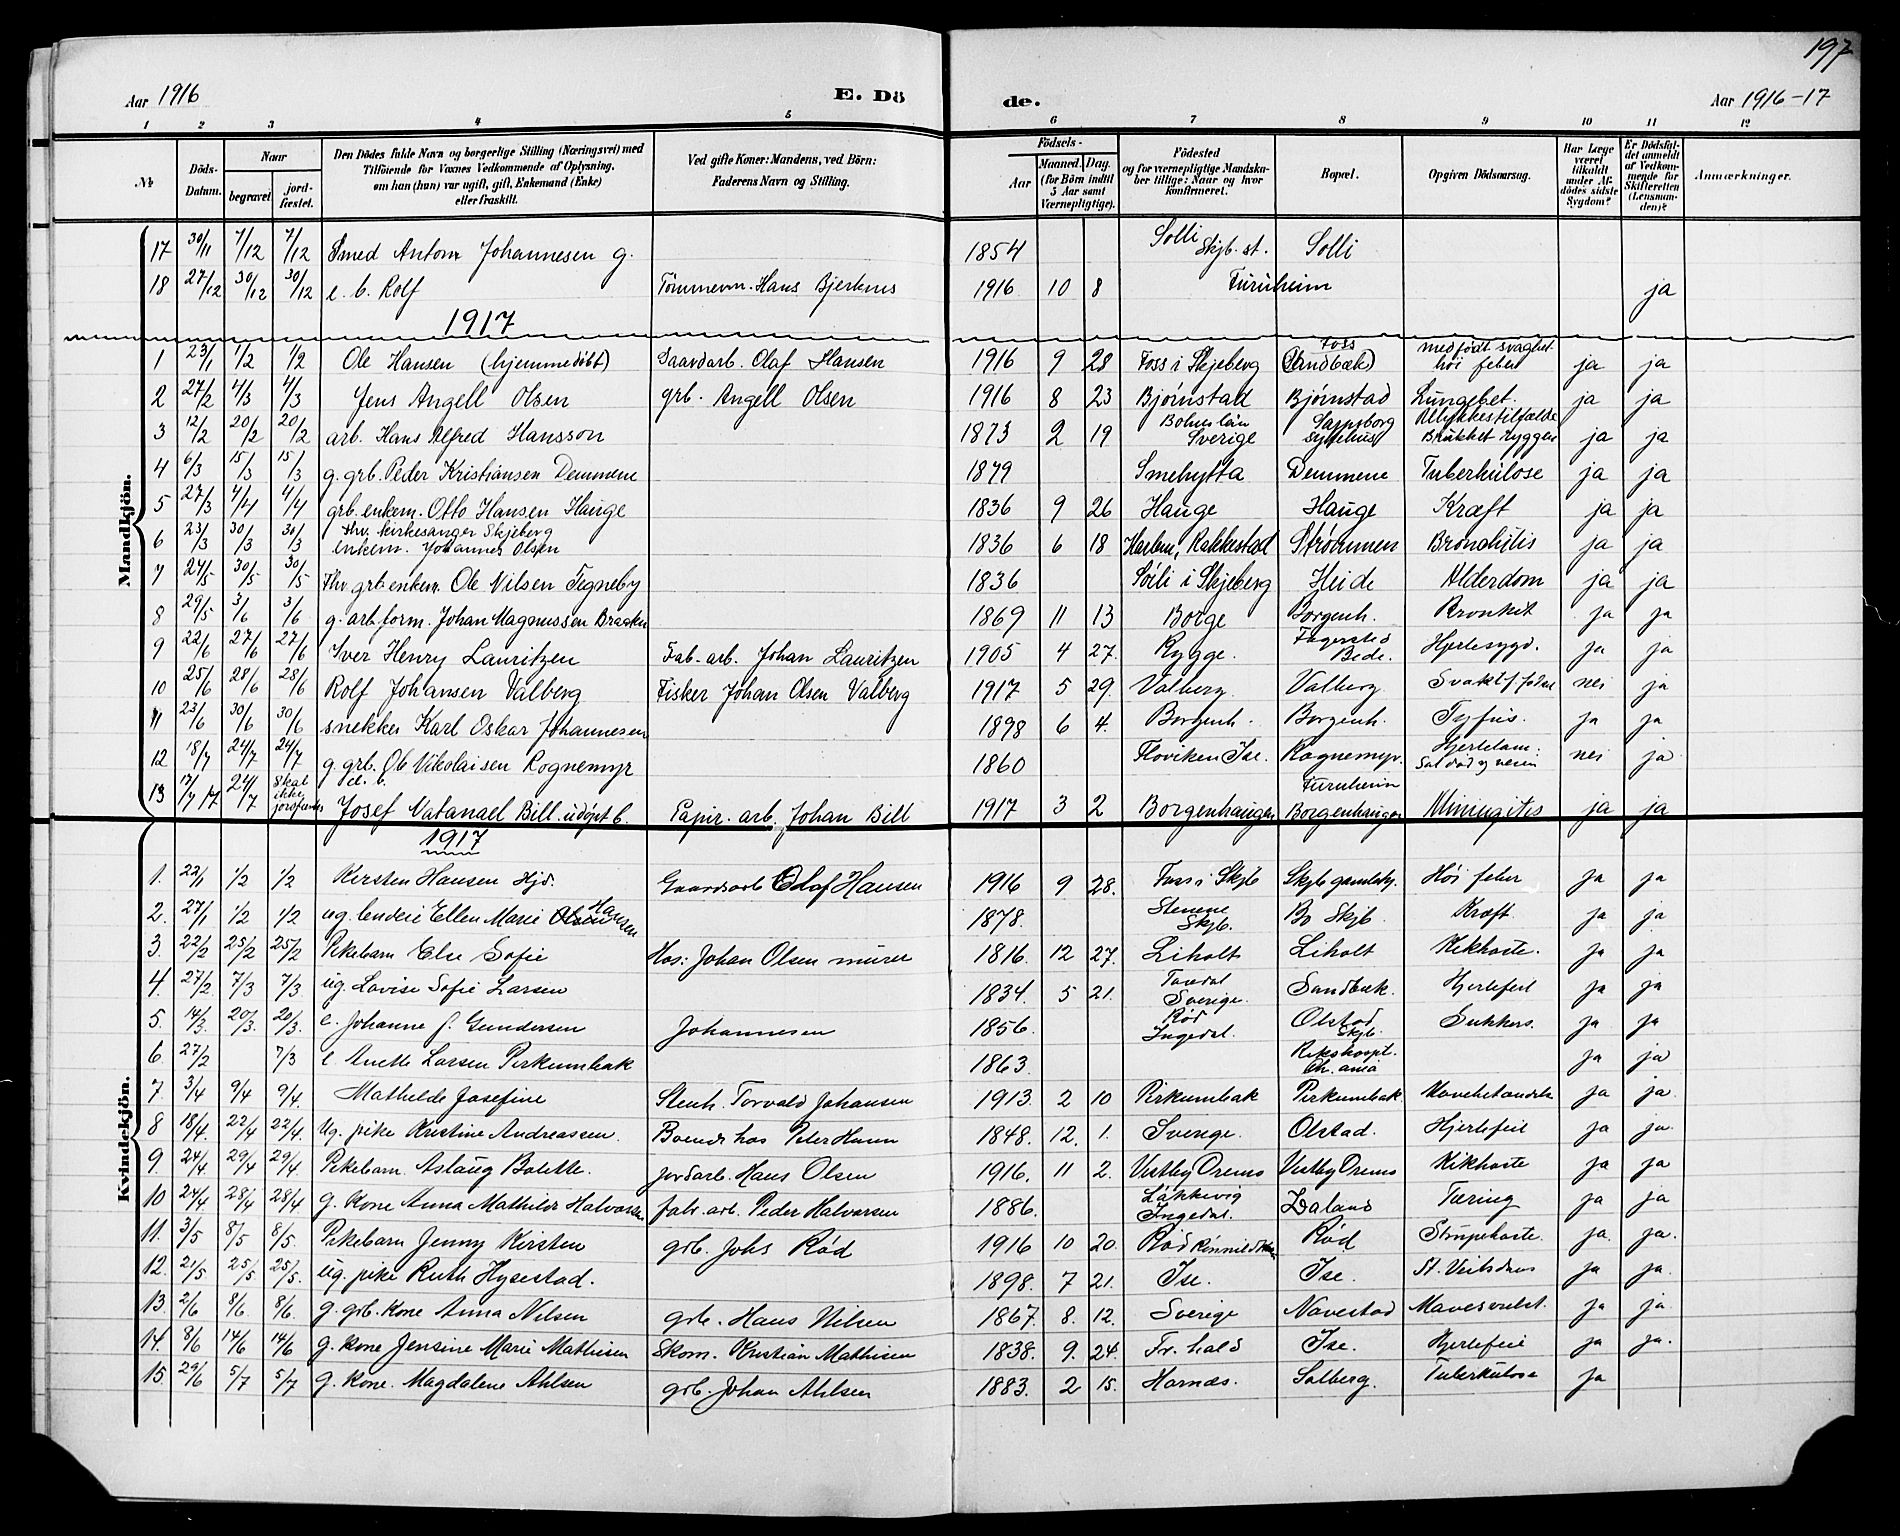 197
Aar 1916 E. Dö de. Aar 1916-17
1 2 3 4 5 6 7 8 9 10 11 12
№ Döds-Datum. Naar begravet jord-fæstet. Den Dödes fulde Navn og borgerlige Stilling (Næringsvei) med Tilföiende for Voxnes Vedkommende af Oplysning, om han (hun) var ugift, gift, Enkemand (Enke) eller fraskilt. Ved gifte Koner: Mandens, ved Börn: Faderens Navn og Stilling. Födsels- Aar Maaned. Dag. (for Börn indtil 3 Aar samt Værnepligtige). Födested og for værnepligtige Mandskaber tillige: Naar og hvor konfirmeret. Bopæl. Opgiven Dödsaarsag. Har Læge været tilkaldt under Afdödes sidste Sygdom? Er Dödsfaldet anmeldt af Vedkommende for Skifteretten (Lensmanden)? Anmærkninger.
Mandkjön.
17 30/11 7/12 7/12 Smed Anton Johannesen g. 1854 Solli Skjb. st. Solli
18 27/12 30/12 30/12 e. b. Rolf Tömmerm. Hans Bjerknes 1916 10 8 Furuheim ja
1917
1 23/1 1/2 1/2 Ole Hansen (hjemmedöbt) Gaardarb. Olaf Hansen 1916 9 28 Foss i Skjeberg Foss (Sandbæk) medfödt svaghet. höi feber ja ja
2 27/2 4/3 4/3 Jens Angell Olsen grb. Angell Olsen 1916 8 23 Bjørnstad Bjørnstad Lungebet. ja ja
3 12/2 20/2 20/2 arb. Hans Alfred Hansson 1873 2 19 Sverige Sarpsborg sykehus Ulykkestilfælde Brukket ryggen ja ja
4 6/3 15/3 15/3 g. grb. Peder Kristiansen Demmene 1879 Smehytta Demmene Tuberkulose ja ja
5 27/3 4/4 4/4 grb. enkem. Otto Hansen Hauge 1836 9 26 Hauge Hauge Kræft ja ja
6 23/3 30/3 30/3 fhv. kirkesanger Skjeberg enkem. Johannes Olsen 1836 6 18 Harlem, Rakkestad Strömmen Bronchitis ja ja
7 24/5 30/5 30/5 Fhv grb. enkem. Ole Nilsen Tegneby 1836 Solli i Skjeberg Heide Alderdom ja ja
8 29/5 3/6 3/6 g. arb. form. Johan Magnussen Braaten 1869 11 13 Borge Borgenh. Bronkit ja ja
9 22/6 27/6 27/6 Iver Henry Lauritzen Fab. arb. Johan Lauritzen 1905 4 27. Rygge. Fagersted Bede. Hjertesygd. ja ja
10 25/6 28/6 28/6 Rolf Johansen Valberg Fisker Johan Olsen Valberg 1917 5 29. Valberg. Valberg. nei ja
11 23/6 30/6 30/6 snekker Karl Oskar Johannesen 1898 6 4. Borgenh. Borgenh. Tyfus. ja ja
12 18/7 24/7 24/7 g grb. Ole Nikolaisen Rognemyr 1860 Floviken Ise. Rognemyr. Hjertelam. nei ja
13 17/7 17 24/7 Skal ikke jordfæstes el. b. Josef Natanael Bill. udöpt b. Papir. arb. Johan Bill 1917 3 2 Borgenhaugen Furuheim Borgenhaugen Miningitis ja ja
Kvindekjön.
1917
1. 22/1 1/2 1/2 Kersten Hansen Hjd. Gaardsarb Olaf Hansen 1916 9 28. Foss i Skjb Skjb gamlehj. Höi feber ja ja
2. 27/1 1/2 1/2 ug. Ellen Marie Olsen Hansen 1878. Stenene Skjb. Bo Skjb. Kræft. ja ja
3. 22/2 25/2 25/2 Pikebarn Else Sofie Hos: Johan Olsen murer 1816. 12 27. Liholt Liholt Kikhoste. ja ja
4. 27/2 7/3 7/3 ug. Lovise Sofie Larsen 1834. 5 21. Sverige. Sandbæk. Hjertefeil ja ja
5. 14/3. 20/3. 20/3. e. Johanne J. Gundersen Johannesen 1856. Rød Ingedal. Olstad Skjb. Sukkers. ja ja
6. 27/2 7/3 e Anette Larsen Pirkumbak 1863. Rikshospit. Ch. ania ja ja
7. 3/4 9/4 9/4. Mathilde Josefine Stenh. Torvald Johansen 1913. 2 10 Pirkumbak Pirkumbak. ja ja.
8 18/4. 22/4 22/4. Ug. pike Kristine Andreassen. Boende hos Peter Hunn 1848. 12. 1. Sverige. Olstad. Hjertefeil ja ja.
9. 24/4. 29/4 29/4 Pikebarn. Aslaug Bolette. jordarb. Hans Olsen 1916. 11 2. Vestby Drems Vestby Drems Kikhoste ja ja
10 24/4. 28/4 28/4 g. kone Anna Mathilde Halvorsen fab. arb. Peder Halvorsen 1886. Løkkevig Ingedal. Daland Tæring ja ja
11. 3/5 8/5 8/5. Pikebarn Jenny Kirsten grb. Johs Rød 1916 10 20. Rød Rød Strupehoste. ja. ja.
12. 21/5 25/5 25/5. ug. pike Ruth Hysestad. 1898. 7 21. Ise. Ise. St. Veitsdans ja ja.
13. 2/6 8/6 8/6. g. grb. kone Anna Nilsen grb. Hans Nilsen 1867. 8. 12. Sverige Navestad Mavesvulst. ja ja.
14. 8/6 14/6 14/6 g. kone Jensine Marie Mathisen Skom. Kristian Mathisen 1838. 9. 24. Fr. hald Ise. Hjertefeil ja ja.
15. 29/6 5/7 5/7 g. kone. Magdalene Ahlsen grb. Johan Ahlsen 1883. 2 15. Hornæs. Solberg. Tuberkulose ja